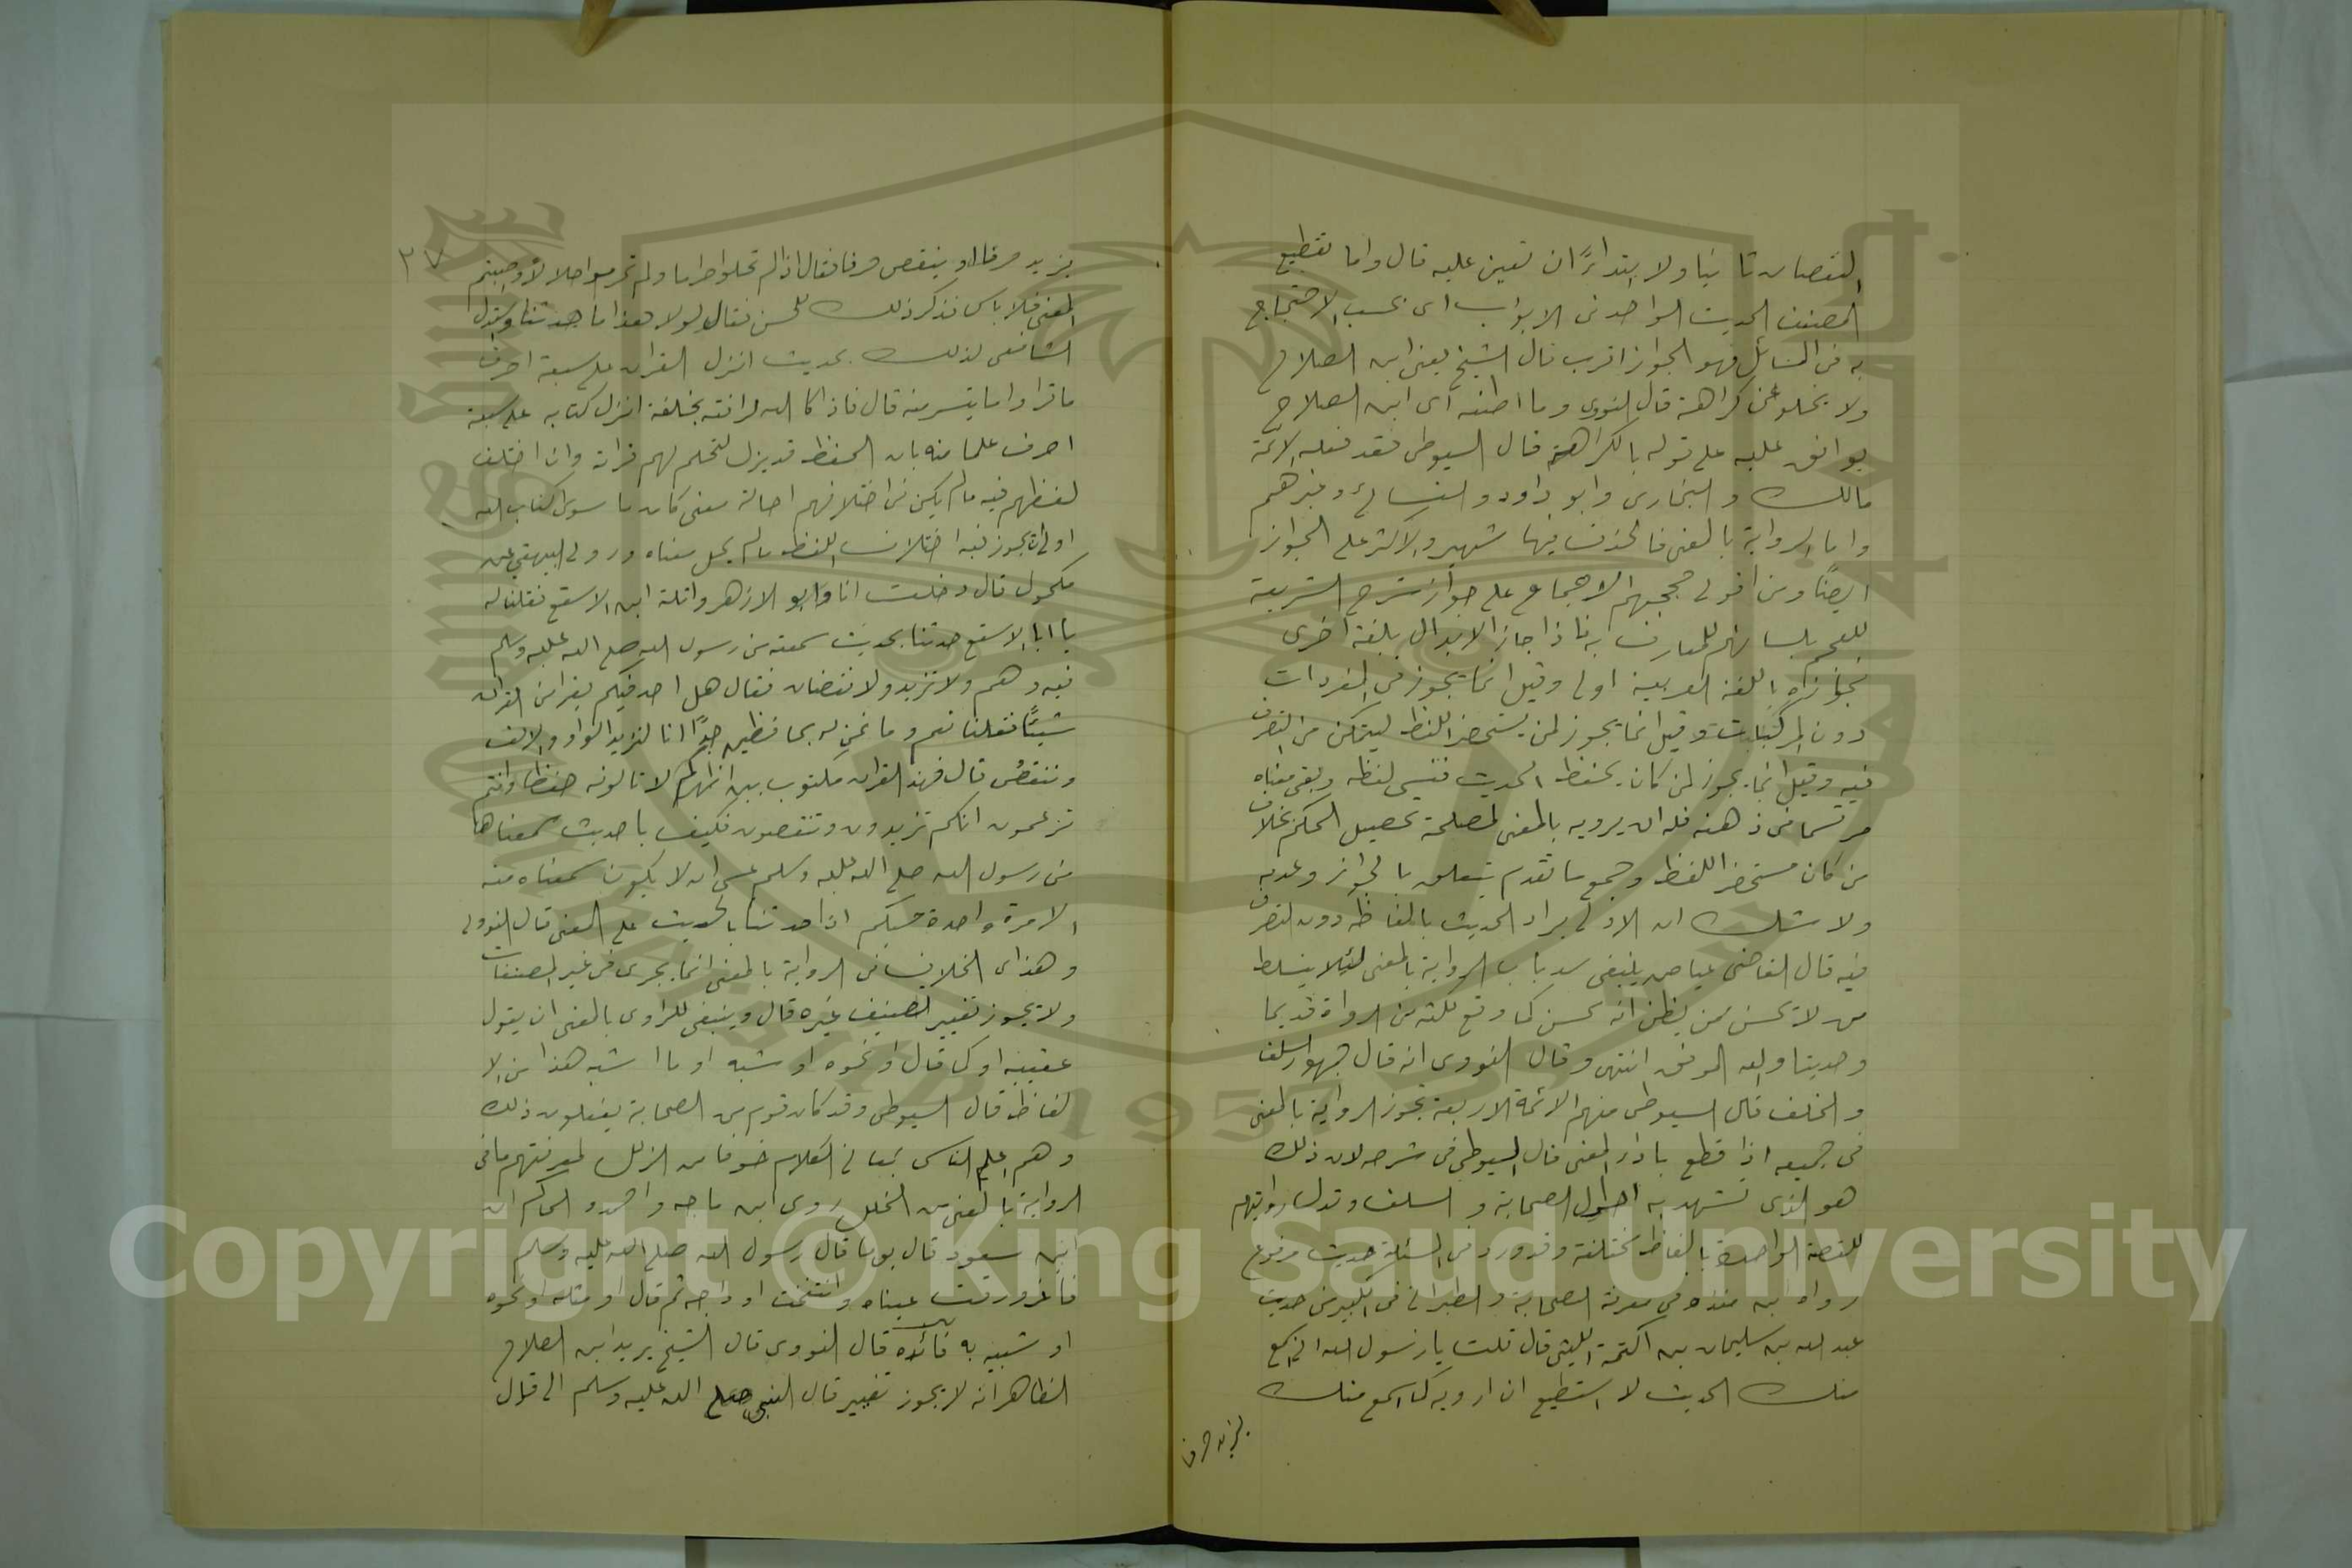 النقصان ثانيا ولا ابتداءً ان تعين عليه قال واما تقطيع
المصنف الحديث الواحد فى الابواب اى بحسب الاحتجاج
به فى المسائل فهو الى الجواز اقرب قال الشيخ يعنى ابن الصلاح
ولا يخلو عن كراهة قال النووى وما اظنه اى ابن الصلاح
يوافق عليه على قوله بالكراهة قال السيوطى فقد فعله الائمة
مالك والبخارى وابو داود والنسائى وغيرهم
واما الرواية بالمعنى فالخلاف فيها شهير والاكثر على الجواز
ايضًا ومن اقوى حججهم الاجماع على جواز شرح الشريعة
للعجم بلسانهم للعارف به فاذا جاز الابدال بلغة اخرى
فجوازه باللغة العربية اولى وقيل انما تجوز فى المفردات
دون المركبات وقيل انما يجوز لمن يستحضر اللفظ ليتمكن من التصرف
فيه وقيل انما يجوز لمن كان يحفظ الحديث فنسى لفظه وبقى معناه
مرتسما فى ذهنه فله ان يرويه بالمعنى لمصلحة تحصيل الحكم بخلاف
من كان مستحضرا للفظ وجميع ما تقدم يتعلق بالجواز وعدمه
ولا شك ان الاولى ايراد الحديث بالفاظه دون التصرف
فيه قال القاضى عياض ينبغى سد باب الرواية بالمعنى لئلا يتسلط
من لا يحسن ممن يظن انه يحسن كما وقع لكثير من الرواة قديما
وحديثا والله الموفق انتهى وقال النووى انه قال جمهور السلف
والخلف قال السيوطى منهم الائمة الاربعة تجوز الرواية بالمعنى
فى جميعه اذا قطع باداء المعنى قال السيوطى فى شرحه لان ذلك
هو الذى تشهد به احوال الصحابة والسلف وتدل روايتهم
للقصة الواحدة بالفاظ مختلفة وقد ورد فى المسئلة حديث مرفوع
رواه ابن منده فى معرفة الصحابة والطبرانى فى الكبير من حديث
عبد الله بن سليمان بن اكتمة الليثى قال قلت يا رسول الله انى اسمع
منك الحديث لا استطيع ان ارويه كما اسمع منك
يزيد حرفا
٢٧
يزيد حرفا او ينقص حرفا فقال اذا لم تحلوا حراما ولم تحرموا حلالا واصبتم
المعنى فلا باس فذكر ذلك للحسن فقال لولا هذا ما حدثنا واستدل
الشافعى لذلك بحديث انزل القران على سبعة احرف
فاقراوا ما يتيسر منه قال فاذا كان الله لرافته بخلقه انزل كتابه على سبعة
احرف علما منه بان الحفظ قد يزل لتحل لهم قراته وان اختلف
لفظهم فيه مالم يكن فى اختلافهم احالة معنى كان ما سوى كتاب الله
اولى ان يجوز فيه اختلاف اللفظ مالم يحل معناه وروى البيهقى عن
مكحول قال دخلت انا وابو الازهر واثلة ابن الاسقع فقلنا له
يا ابا الاسقع حدثنا بحديث سمعته من رسول الله صلى الله عليه وسلم
فيه وهم ولا تزيد ولا نقصان فقال هل احد فيكم يقرا من القران
شيئًا فقلنا نعم وما نحن له بحافظين جدًّا انا لنزيد الواو والالف
وننقص قال فهذا القران مكتوب بين اظهركم لا تالونه حفظا وانتم
تزعمون انكم تزيدون وتنقصون فكيف باحاديث سمعناها
من رسول الله صلى الله عليه وسلم عسى ان لا يكون سمعناه منه
الا مرة واحدة حسبكم اذا حدثنا بالحديث على المعنى قال النووى
وهذا اى الخلاف فى الرواية بالمعنى انما يجرى فى غير المصنفات
ولا يجوز تغيير تصنيف غيره قال وينبغى للراوى بالمعنى ان يقول
عقيبه او كما قال او نحوه او شبه او ما اشبه هذا من الا
لفاظ قال السيوطى وقد كان قوم من الصحابة يفعلون ذلك
وهم اعلم الناس بمعانى الكلام خوفا من الزلل لمعرفتهم ما فى
الرواية بالمعنى من الخلل روى ابن ماجه واحمد والحاكم ان
ابن مسعود قال يوما قال رسول الله صلى الله عليه وسلم
فاغرورقت عيناه وانتفخت اوداجه ثم قال او مثله او نحوه
او شبيه به فائدة قال النووى قال الشيخ يريد ابن الصلاح
الظاهر انه لا يجوز تغيير قال النبى صلى الله عليه وسلم الى قال
Copyright © King Saud University
1957